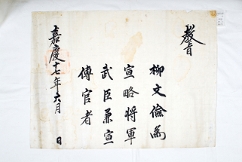 教旨
柳文儉為
宣略將軍
武臣兼宣
傳官者
嘉慶十七年六月 日